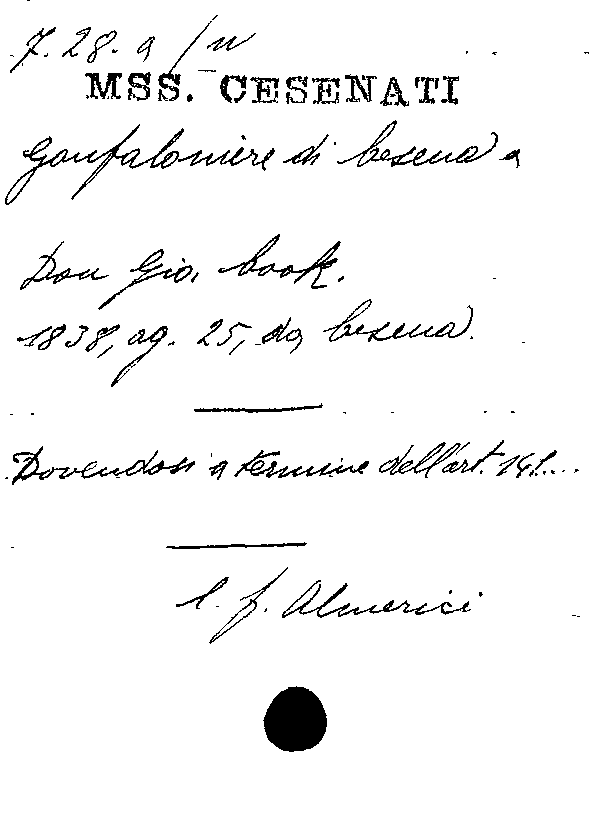 7. 28. a / n
MSS. CESENATI
Gonfaloniere di Cesena a
Don Gio. Cook.
1838, ag. 25, da Cesena.
Dovendosi a termine dell'art. 141....
l. f. Almerici